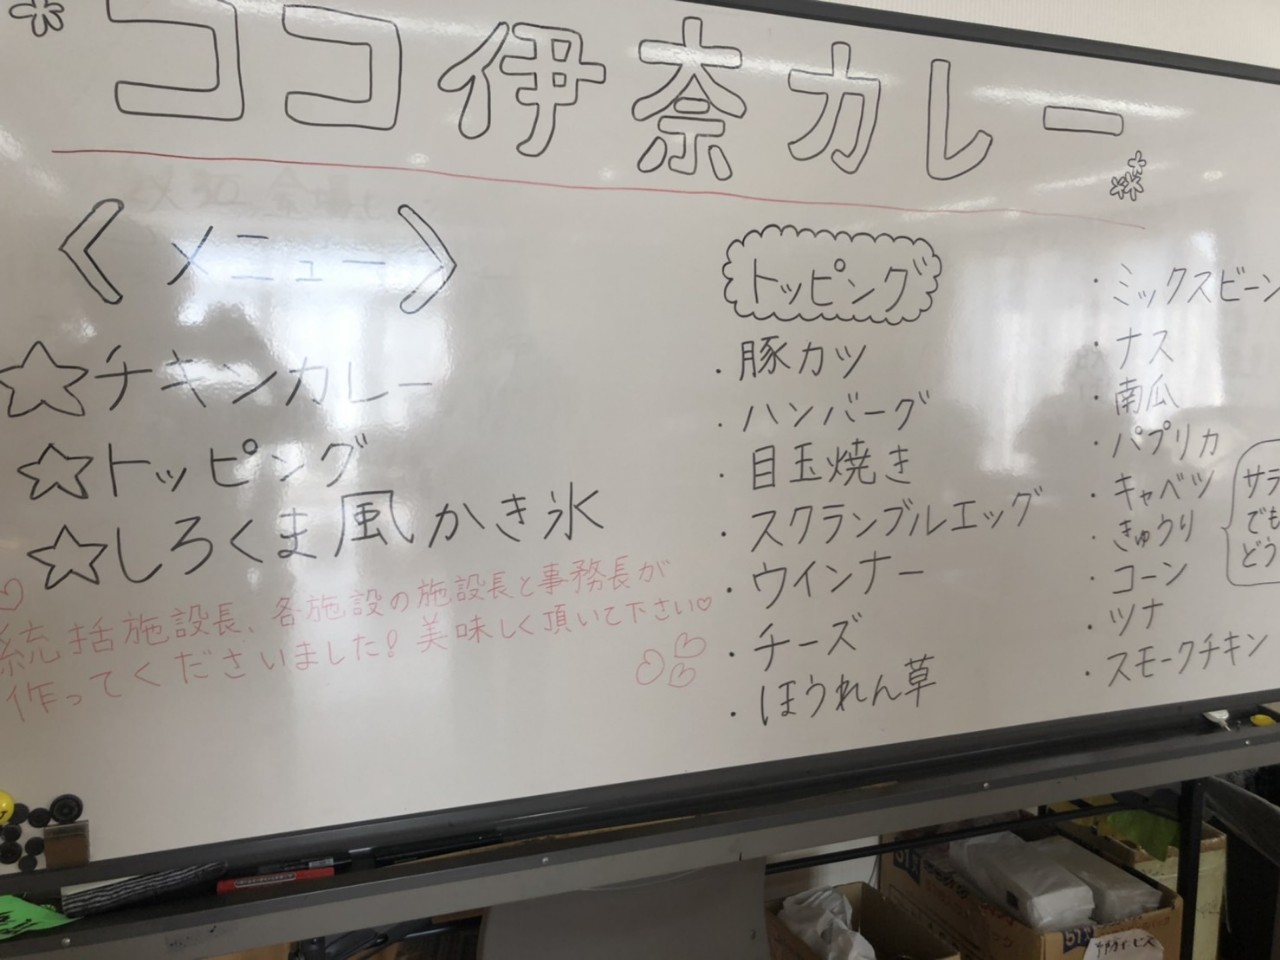 ココ伊奈カレー
〈メニュー〉
☆チキンカレー
☆トッピング
☆しろくま風かき氷
統括施設長、各施設の施設長と事務長が
作ってくださいました!美味しく頂いて下さい♡
トッピング
・豚カツ
・ハンバーグ
・目玉焼き
・スクランブルエッグ
・ウインナー
・チーズ
・ほうれん草
・ミックスビーン
・ナス
・南瓜
・パプリカ
・キャベツ
・きゅうり
・コーン
・ツナ
・スモークチキン
サラ
でも
どう